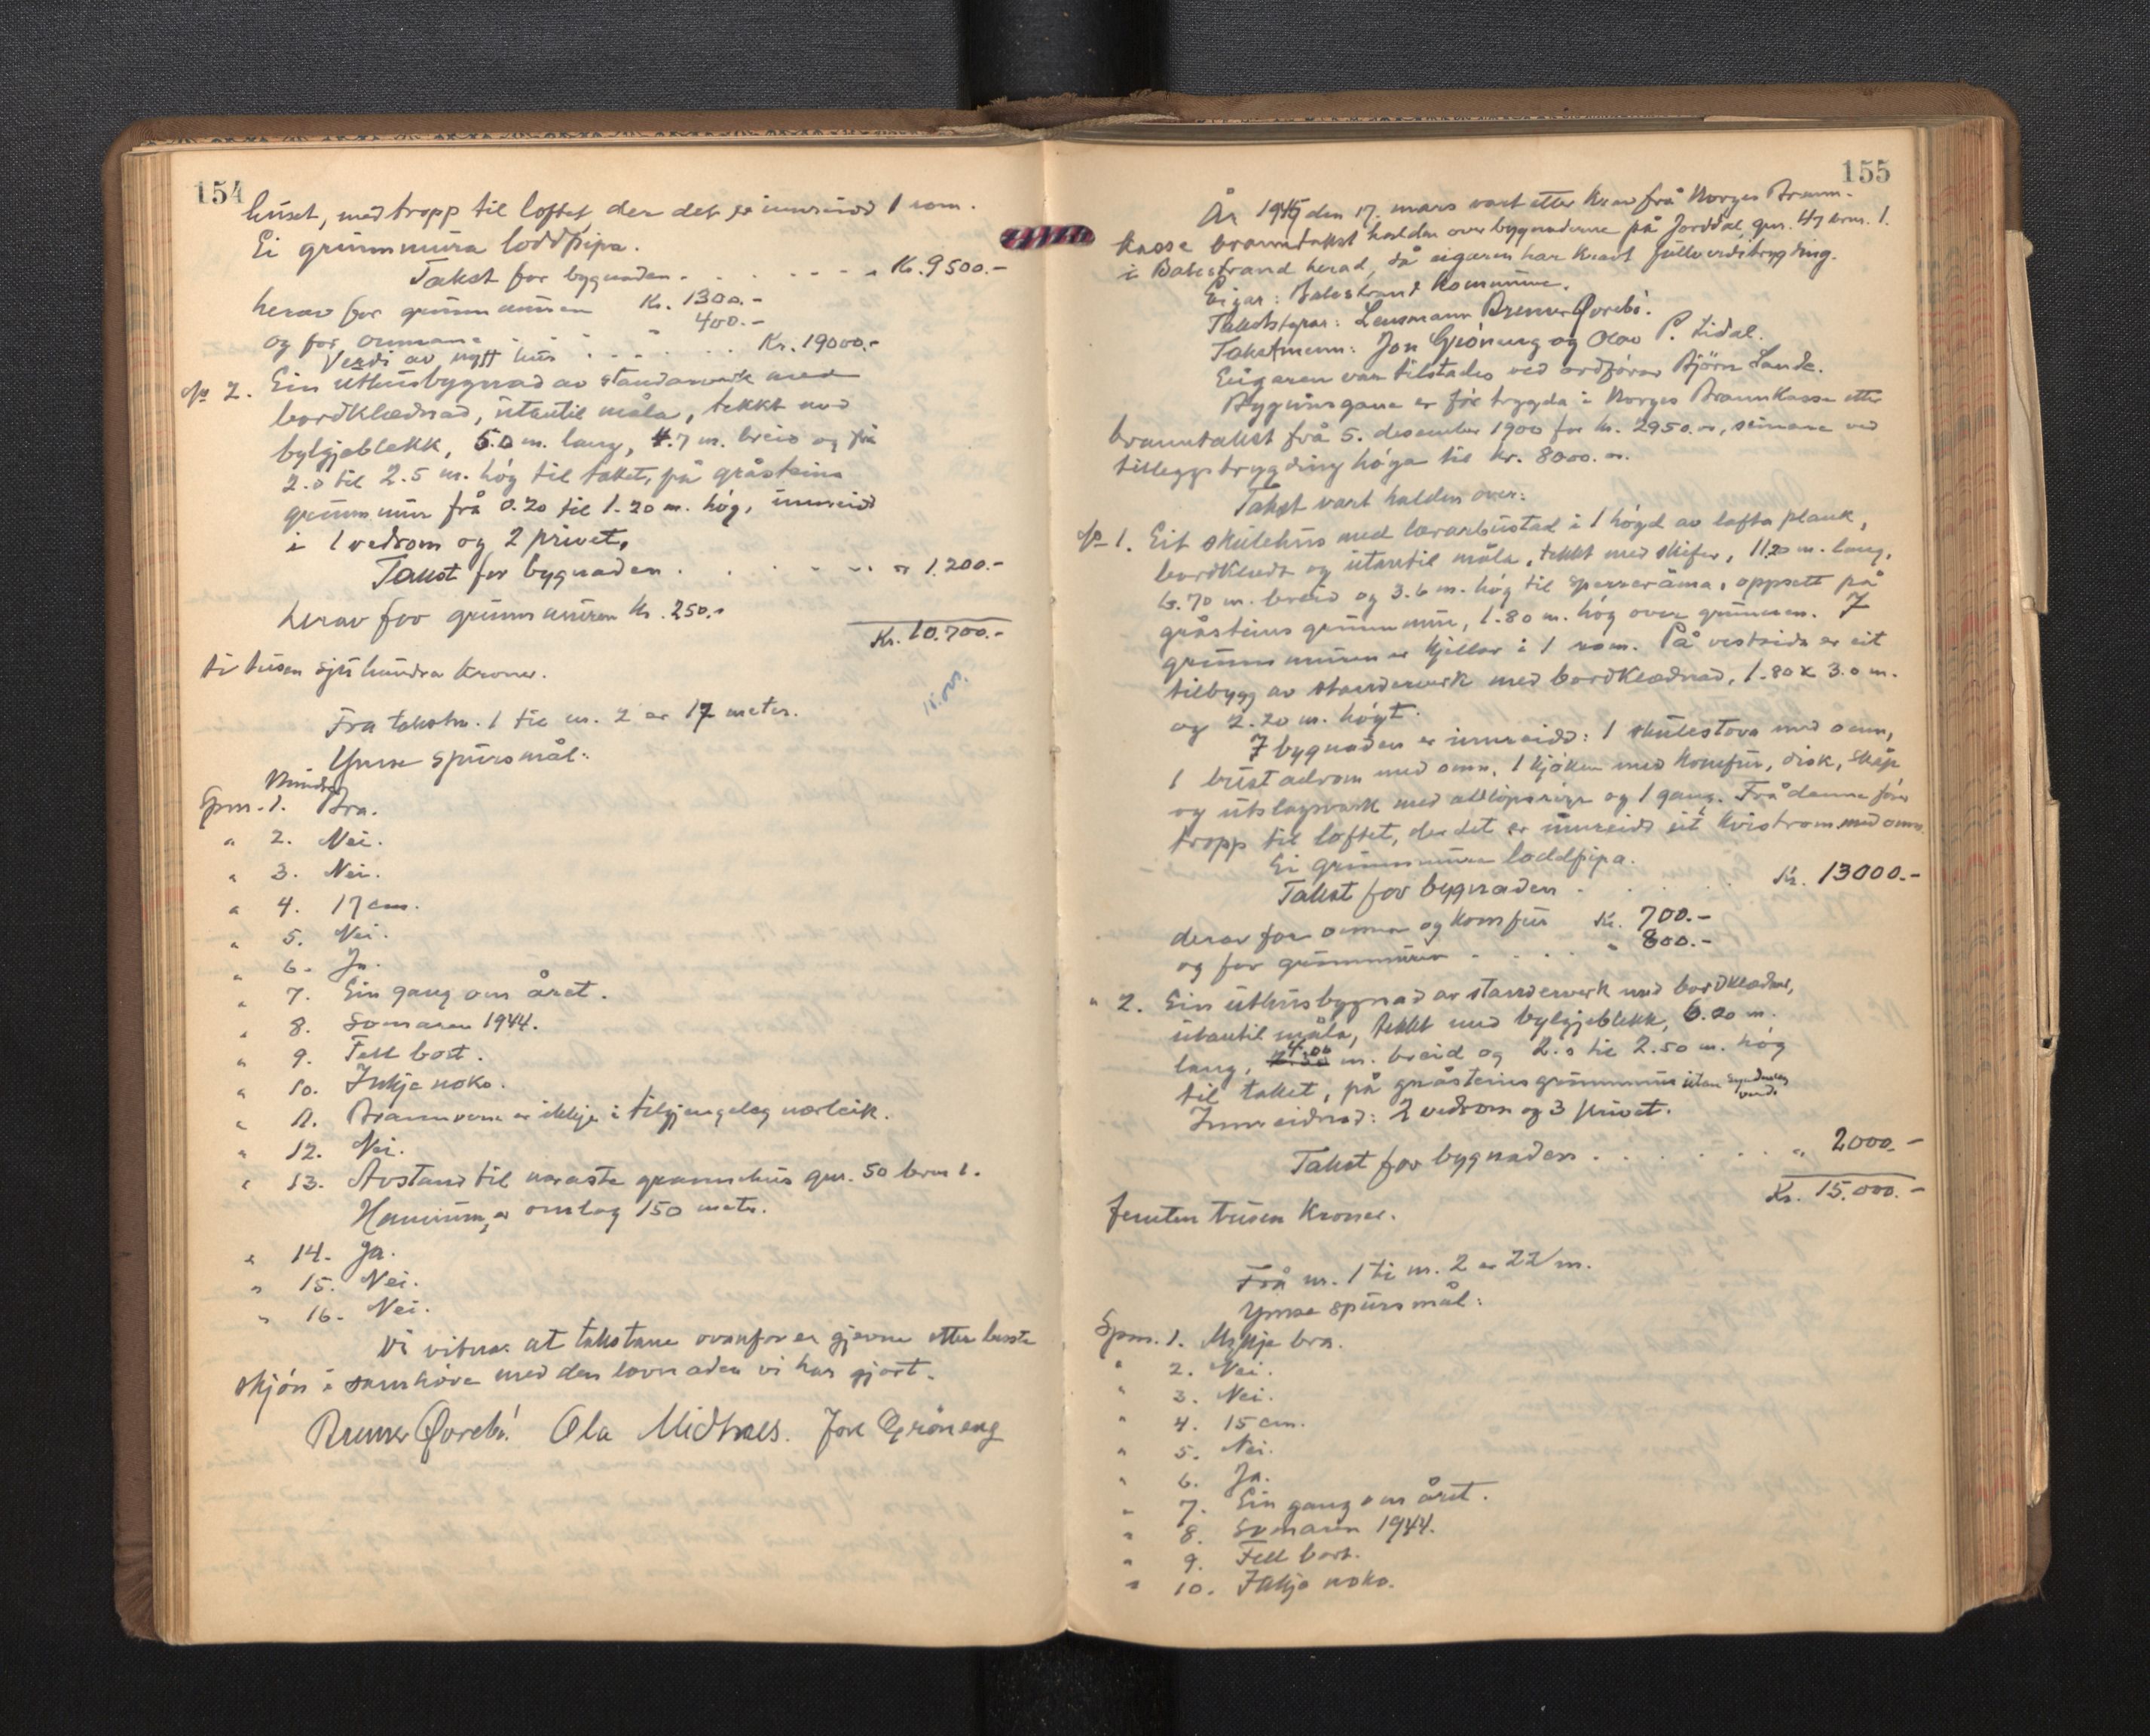 154
huset, med tropp til loftet der det er innreidd 1 rom.
Ei grunnmura loddpipa.
Takst for bygnaden . . . . . . . Kr. 9500.-
herav for grunnmuren Kr. 1300.-
og for omnane . . . " 400.-
Verdi av nytt hus . . . . . . Kr. 19000.-
Nr 2. Ein uthusbygnad av standarverk med
bordklædnad, utantil måla, tekkt med
bylgjeblekk, 5.0 m. lang, 4.7 m. breid og frå
2.0 til 2.5 m. høg til taket, på gråsteins
grunnmur frå 0.20 til 1.20 m. høg, innreidd
i 1 vedrom og 2 privet,
Takst for bygnaden . . . . . . " 1.200.-
herav for grunnmuren kr. 250.-
Kr. 10.700.-
ti tusen sju hundra kroner.
Fra takstnr. 1 til nr. 2 er 17 meter.
Ymse spursmål:
Mindre
Spm. 1. Bra.
" 2. Nei.
" 3. Nei.
" 4. 17 cm.
" 5. Nei.
" 6. Ja.
" 7. Ein gang om året.
" 8. Somaren 1944.
" 9. Fell bort.
" 10. Inkje noko.
" 11. Brannvern er ikkje i tilgjengeleg nærleik.
" 12. Nei.
" 13. Avstand til næraste grannehus gnr. 50 brnr 1.
er omlag 150 meter.
" 14. Ja.
" 15. Nei.
" 16. Nei.
Vi vitnar at takstane ovanfor er gjevne etter beste
skjøn i samhøve med den lovnaden vi har gjort.
Bremer Øvrebö. Ola Midtnes. Jon Grøneng
155
År 1945 den 17. mars vart etter krav frå Norges Brann-
kasse branntakst halden over bygnaderne på Jorddal, gnr. 47 brnr. 1.
i Balestrand herad, då eigaren har kravt fullverditrygding.
Eigar: Balestrand kommune.
Takststyrar: Lensmann Bremer Øvrebö.
Takstmenn: Jon Grøneng og Olav P. Lidal.
Eigaren var tilstades ved ordførar Björn Lande.
Bygningane er før trygda i Norges Brannkasse etter
branntakst frå 5. desember 1900 for kr. 2950.00, seinare ved
tilleggstrygding høga til kr. 8000.00.
Takst vart halden over:
Nr 1. Eit skulehus med lærarbustad i 1 høgd av lafta plank,
bordkledt og utantil måla, tekkt med skifer, 11.20 m. lang,
6.70 m. breid og 3.6 m. høg til sperreråma, oppsett på
gråsteins grunnmur, 1.80 m. høg over grunnen. I
grunnmuren er kjellar i 1 rom. På vestsida er eit
tilbygg av standerverk med bordklædnad, 1.80 x 3.0 m.
og 2.20 m. høgt.
I bygnaden er innreidd: 1 skulestova med omn,
1 bustadrom med omn, 1 kjøken med komfur, disk, skåp
og utslagsvask med avløpsrøyr og 1 gang. Frå denne fører
tropp til loftet, der det er innreidd eit kvistrom med omn.
Ei grunnmura loddpipa.
Takst for bygnaden . . . . . Kr. 13000.-
derav for omnar og komfur Kr. 700.-
og for grunnmuren . . . . " 800.-
" 2. Ein uthusbygnad av standerverk med bordklædnad,
utantil måla, tekkt med bylgjeblekk, 6.20 m.
lang, 4.00 m. breid og 2.0 til 2.50 m. høg
til taket, på gråsteinsgrunnmur utan
Innreidnad: 2 vedrom og 3 privet.
Takst for bygnaden . . . . . . " 2000.-
Kr. 15.000.-
femten tusen kroner.
Frå nr. 1 ti nr. 2 er 22 m.
Ymse spursmål:
Spm. 1. Mykje bra.
" 2. Nei.
" 3. Nei.
" 4. 15 cm.
" 5. Nei.
" 6. Ja.
" 7. Ein gang om året.
" 8. Somaren 1944.
" 9. Fell bort.
" 10. Inkje noko.